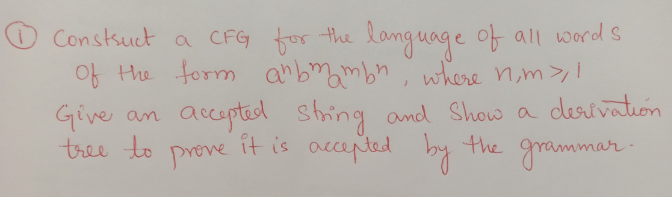 ① Construct a CFG for the language of all words
Of the form aⁿbᵐaᵐbⁿ, where n,m ≥ 1
Give an accepted string and Show a derivation
tree to prove it is accepted by the grammar.